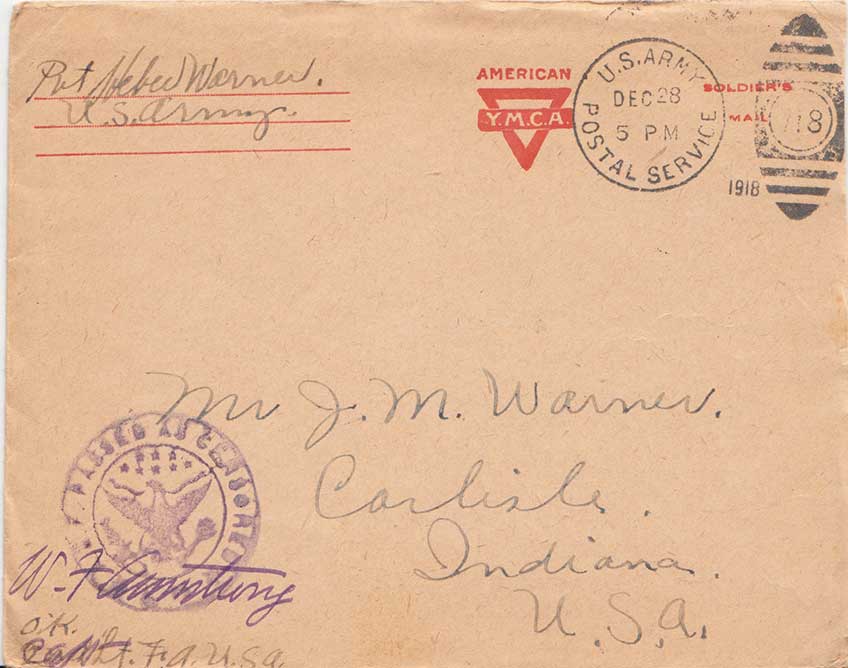 Pvt Heber Warner.
U.S. Army.
AMERICAN
Y.M.C.A.
U.S. ARMY
POSTAL SERVICE
DEC 28
5 PM
1918
SOLDIER'S
MAIL
718
Mr J. M. Warner.
Carlisle.
Indiana.
U.S.A.
PASSED AS CENSORED
W. F. Armstrong
O.K.
F.A. U.S.A.